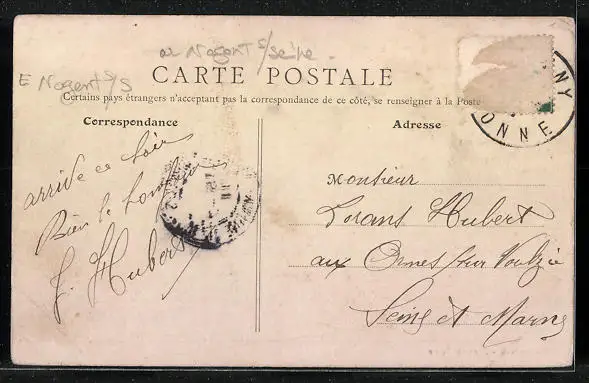 al Nogent s/seine -
E Nogent s/S
CARTE POSTALE
Certains pays étrangers n'acceptant pas la correspondance de ce côté, se renseigner à la Poste
Correspondance
arrive ce soir
Bien le bonjour
J. Hubert
Adresse
Monsieur
Hubert
aux Ormes sur Voulzie
Seine et Marne
NY
ONNE